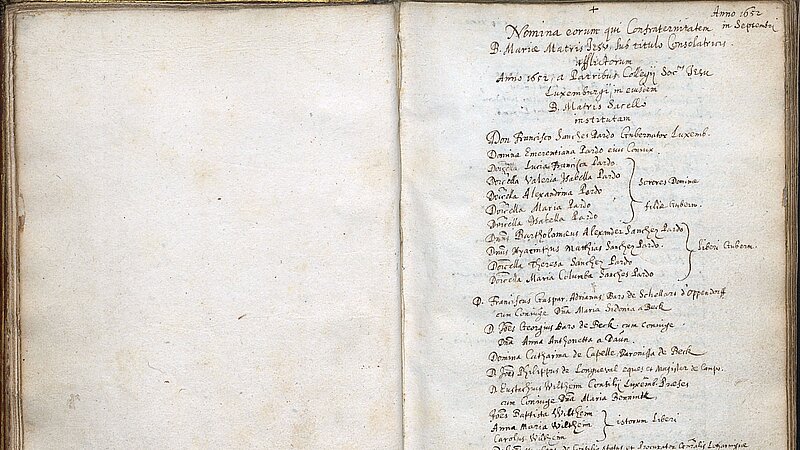 Anno 1652
in Septembri
Nomina eorum qui Confraternitatem
B. Mariæ Matris Iesu sub titulo Consolatricis
afflictorum
Anno 1652 a Patribus Collegij Soc. Iesu
Luxemburgi in eiusdem
B. Matris Sacello
institutam
Don Francisco Sanches Pardo Gubernator Luxemb.
Domina Emerentiana Pardo eius Coniux
Doicella Lucia Francisca Pardo
Doicella Valeria Isabella Pardo
Doicella Alexandrina Pardo
Doicella Maria Pardo
Doicella Isabella Pardo
Sorores Domina
filiæ Gubern.
Dnus Bartholomæus Alexander Sanchez Pardo
Dnus Hyacinthus Matthias Sanchez Pardo
Doicella Theresa Sanchez Pardo
Doicella Maria Columba Sanches Pardo
Liberi Gubern.
D. Franciscus Gaspar Adrianus Baro de Schellart d'Oppendorff
cum Coniuge Dna Maria Sidonia a Beck
D Joes Georgius Baro de Beck cum coniuge
Dna Anna Anthonetta a Daun.
Domina Catharina de Capelle Baronissa de Beck
D. Joes Philippus de Longueval eques et Magister de Campo.
D. Eustachius Wiltheim Consilij Luxemb. Præses
cum Coniuge Dna Maria
Joes Baptista Wiltheim
Anna Maria Wiltheim
Carolus Wiltheim
istorum Liberi